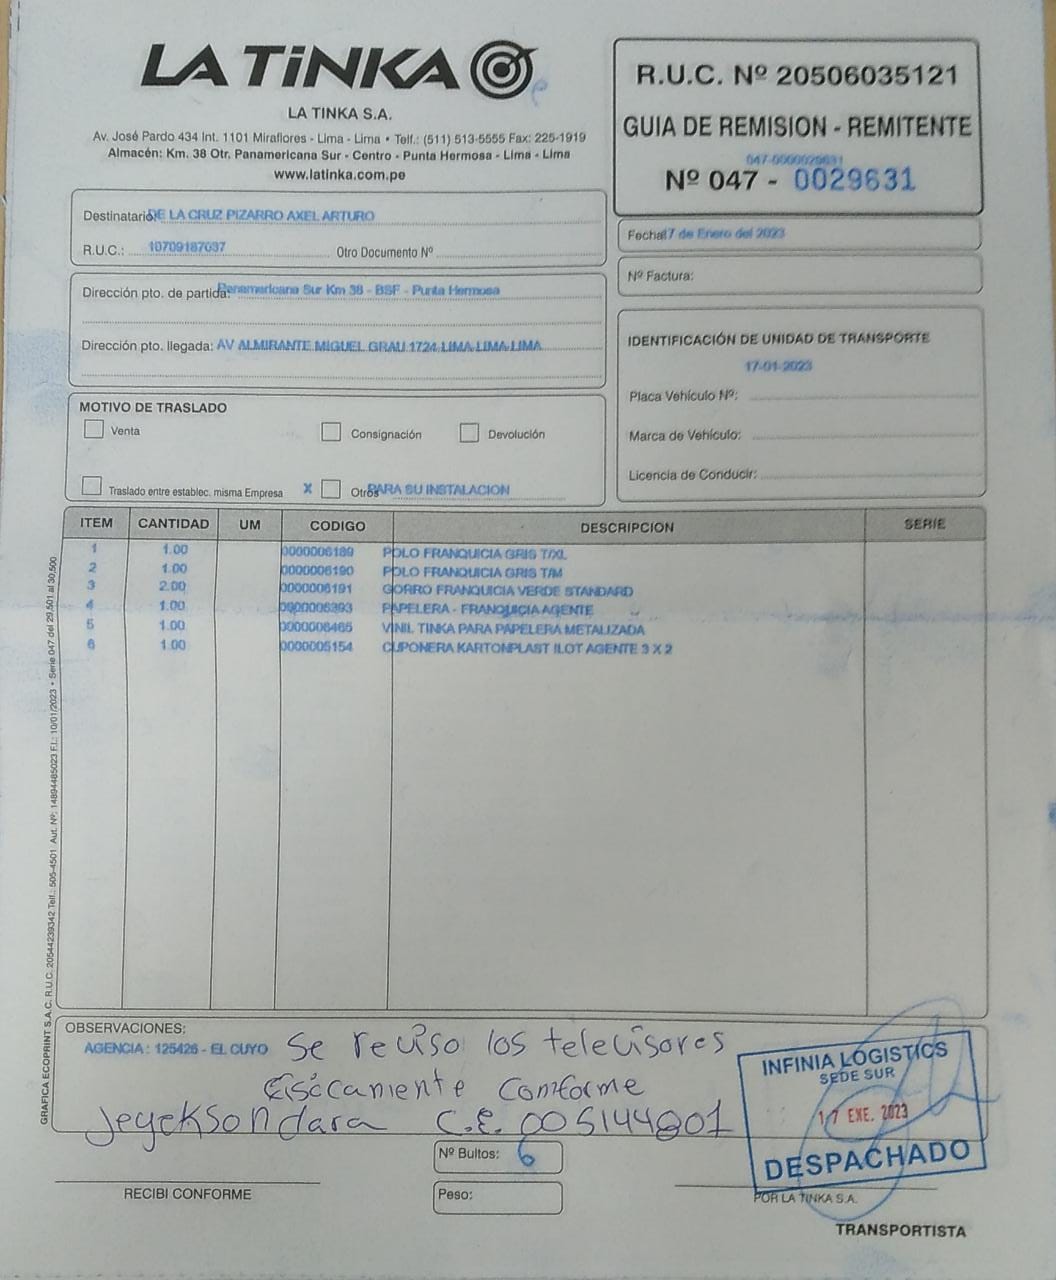 LA TiNKA
LA TINKA S.A.
Av. José Pardo 434 Int. 1101 Miraflores - Lima - Lima • Telf.: (511) 513-5555 Fax: 225-1919
Almacén: Km. 38 Otr. Panamericana Sur - Centro - Punta Hermosa - Lima - Lima
www.latinka.com.pe
R.U.C. Nº 20506035121
GUIA DE REMISION - REMITENTE
047-0000029631
Nº 047 - 0029631
Destinatario: DE LA CRUZ PIZARRO AXEL ARTURO
R.U.C.: 10709187037 Otro Documento Nº
Fecha: 17 de Enero del 2023
Nº Factura:
Dirección pto. de partida: Panamericana Sur Km 38 - BSF - Punta Hermosa
Dirección pto. llegada: AV ALMIRANTE MIGUEL GRAU 1724-LIMA-LIMA-LIMA
IDENTIFICACIÓN DE UNIDAD DE TRANSPORTE
17-01-2023
Placa Vehículo Nº:
Marca de Vehículo:
Licencia de Conducir:
MOTIVO DE TRASLADO
Venta Consignación Devolución
Traslado entre establec. misma Empresa X Otros PARA SU INSTALACION
ITEM CANTIDAD UM CODIGO DESCRIPCION SERIE
1 1.00 0000006189 POLO FRANQUICIA GRIS T/XL
2 1.00 0000006190 POLO FRANQUICIA GRIS T/M
3 2.00 0000006191 GORRO FRANQUICIA VERDE STANDARD
4 1.00 0000006393 PAPELERA - FRANQUICIA AGENTE
5 1.00 0000006465 VINIL TINKA PARA PAPELERA METALIZADA
6 1.00 0000005154 CUPONERA KARTONPLAST ILOT AGENTE 3 X 2
GRAFICA ECOPRINT S.A.C. R.U.C. 20544239342 Telf.: 505-4501 Aut. Nº: 14894485023 F.I.: 10/01/2023 • Serie 047 del 29,501 al 30,500
OBSERVACIONES:
AGENCIA : 125426 - EL CUYO
Se reviso los televisores
Fisicamiente Conforme
Jeyckson dara C.E. 005144801
INFINIA LOGISTICS
SEDE SUR
17 ENE. 2023
DESPACHADO
Nº Bultos: 6
Peso:
RECIBI CONFORME
POR LA TINKA S.A.
TRANSPORTISTA